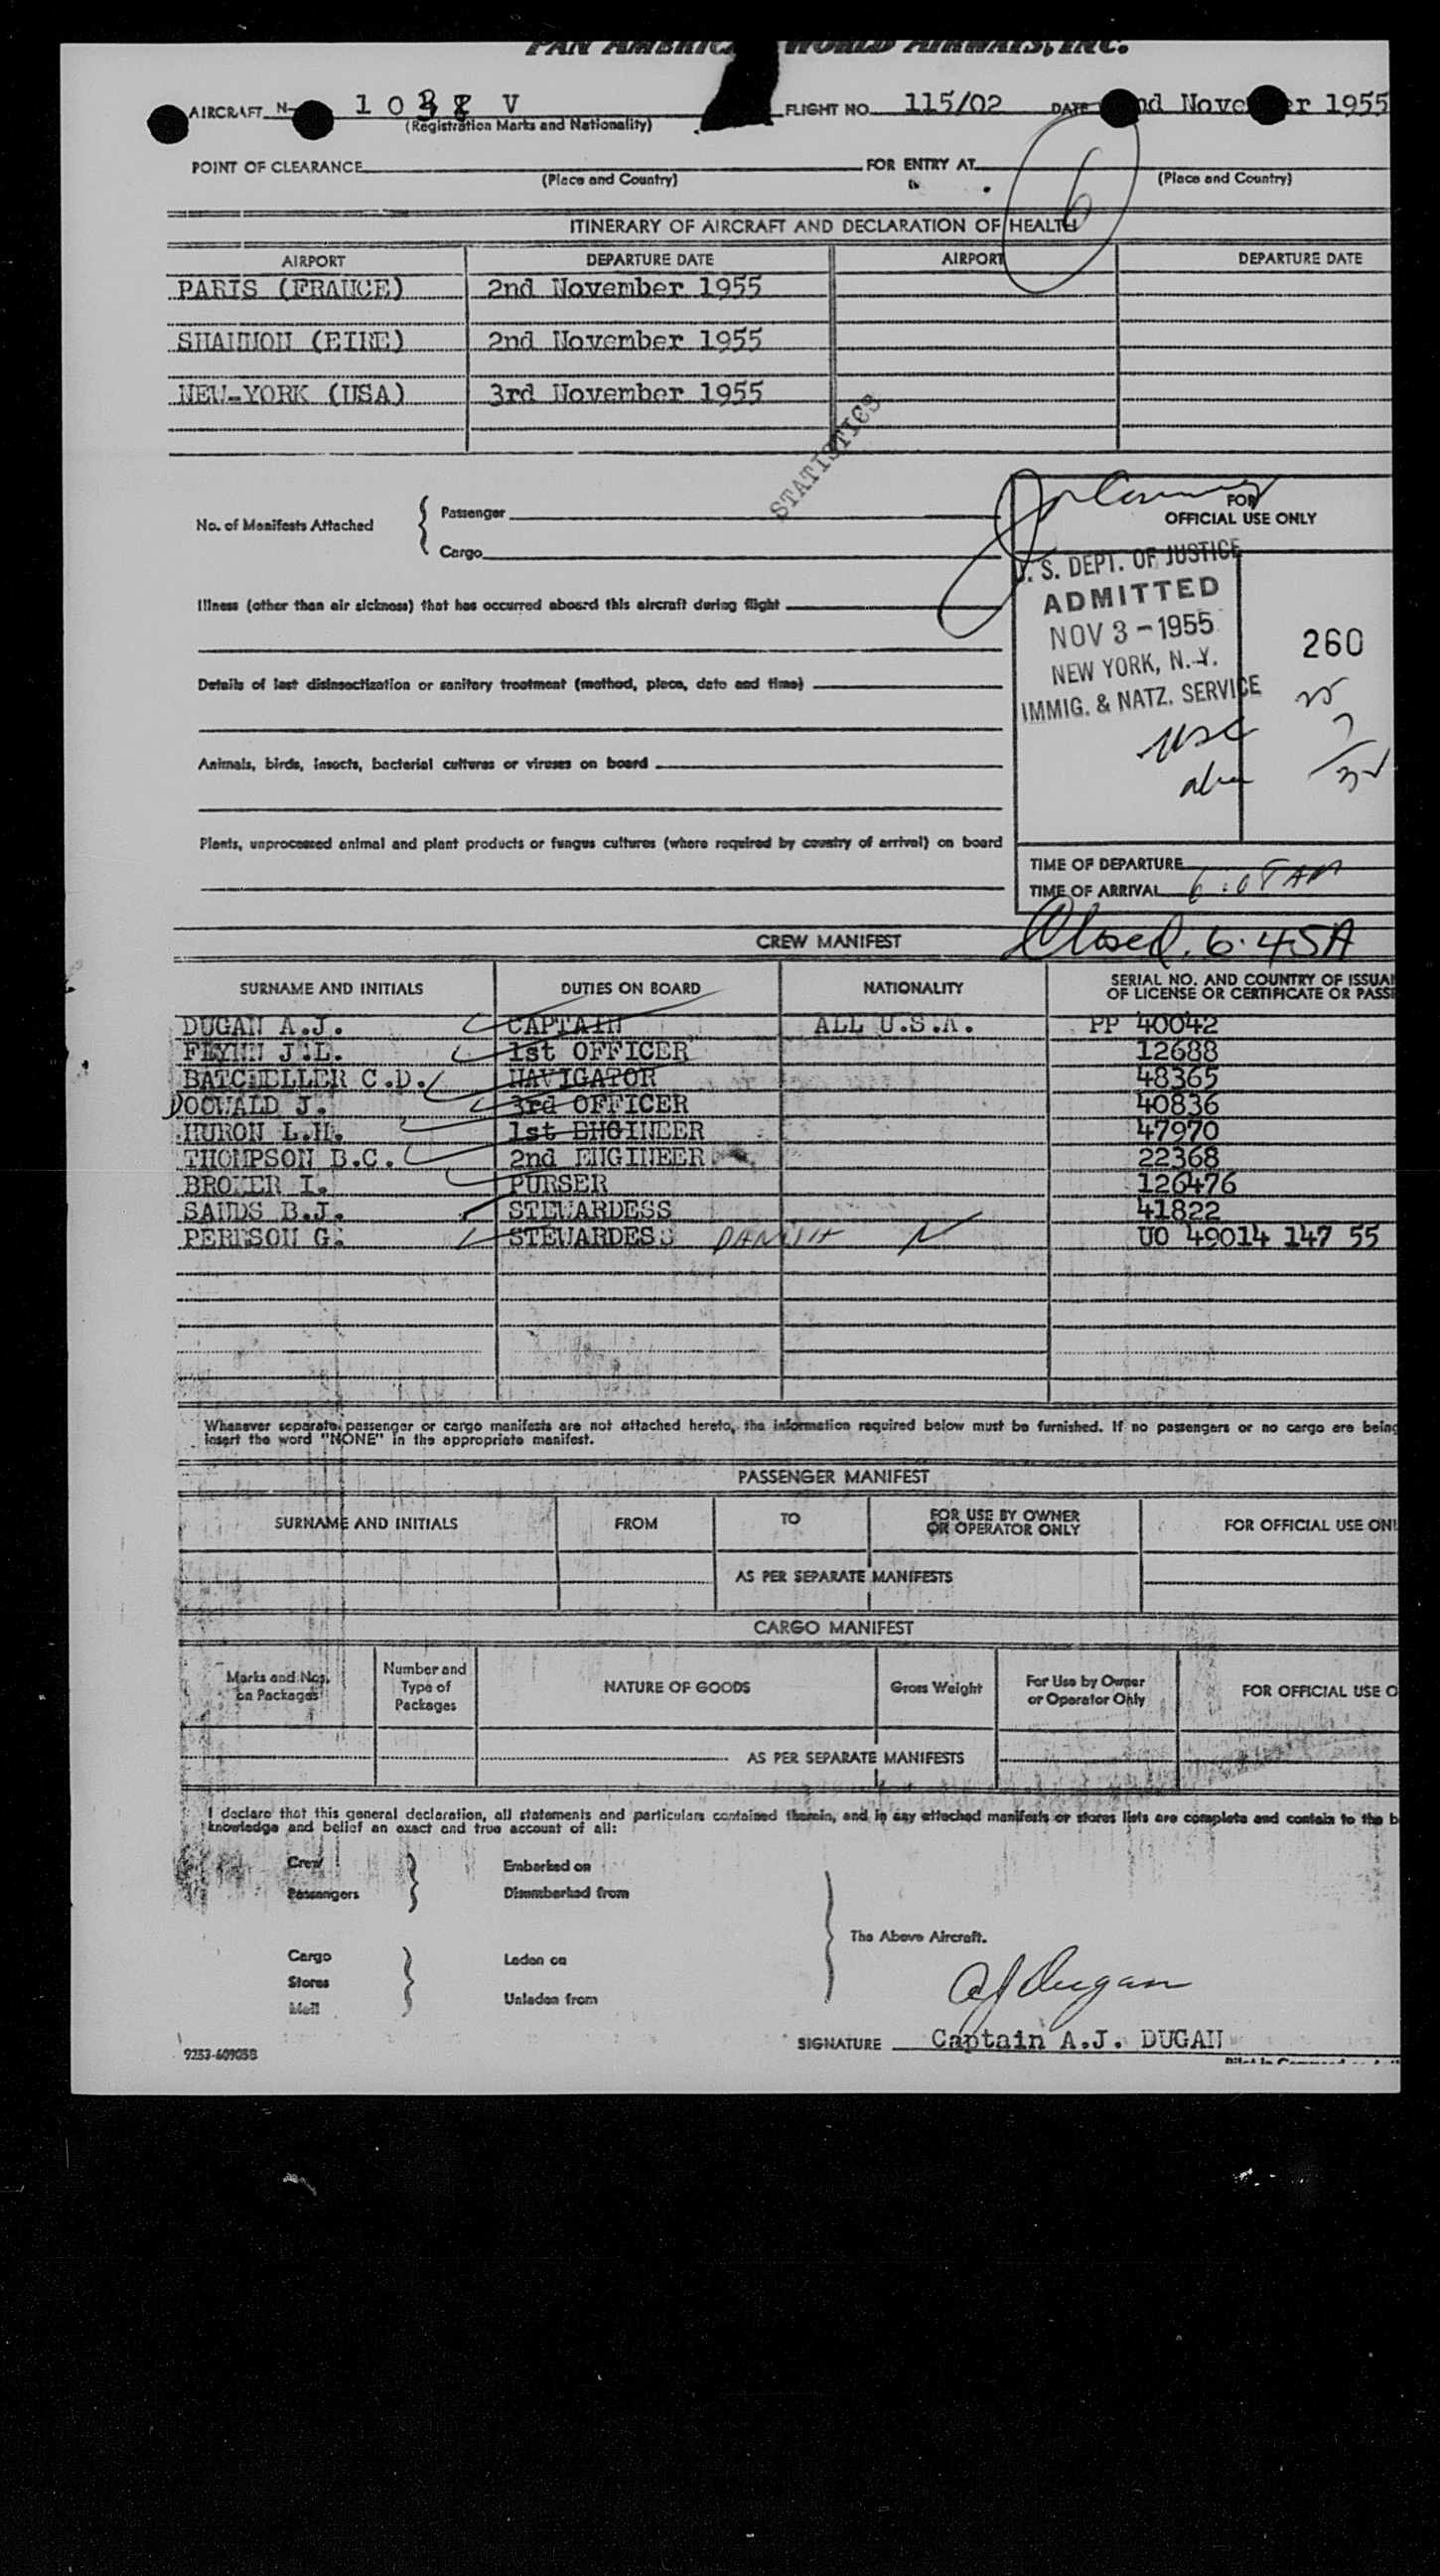 PAN AMERICA WORLD AIRWAYS, INC.
AIRCRAFT N- V FLIGHT NO. 115/02 DATE nd November 1955
(Registration Marks and Nationality)
POINT OF CLEARANCE FOR ENTRY AT
(Place and Country) (Place and Country)
6
ITINERARY OF AIRCRAFT AND DECLARATION OF HEALTH
AIRPORT DEPARTURE DATE AIRPORT DEPARTURE DATE
PARIS (FRANCE) 2nd November 1955
SHANNON (EIRE) 2nd November 1955
NEW-YORK (USA) 3rd November 1955
STATISTICS
No. of Manifests Attached
Passenger
Cargo
FOR
OFFICIAL USE ONLY
U. S. DEPT. OF JUSTICE
ADMITTED
NOV 3 - 1955
NEW YORK, N. Y.
IMMIG. & NATZ. SERVICE
260
usc 25
alien 7
32
Illness (other than air sickness) that has occurred aboard this aircraft during flight
Details of last disinsectization or sanitary treatment (method, place, date and time)
Animals, birds, insects, bacterial cultures or viruses on board
Plants, unprocessed animal and plant products or fungus cultures (where required by country of arrival) on board
TIME OF DEPARTURE
TIME OF ARRIVAL 6:08 AM
Closed 6.45A
CREW MANIFEST
SURNAME AND INITIALS DUTIES ON BOARD NATIONALITY SERIAL NO. AND COUNTRY OF ISSUAN
OF LICENSE OR CERTIFICATE OR PASSP
DUGAN A.J. CAPTAIN ALL U.S.A. PP 40042
FLYNN J.L. 1st OFFICER 12688
BATCHELLER C.D. NAVIGATOR 48365
3rd OFFICER 40836
HURON L.H. 1st ENGINEER 47970
THOMPSON B.C. 2nd ENGINEER 22368
I. PURSER 126476
SANDS B.J. STEWARDESS 41822
G. STEWARDESS DANISH N UO 49014 147 55
Whenever separate passenger or cargo manifests are not attached hereto, the information required below must be furnished. If no passengers or no cargo are being
insert the word "NONE" in the appropriate manifest.
PASSENGER MANIFEST
SURNAME AND INITIALS FROM TO FOR USE BY OWNER OR OPERATOR ONLY FOR OFFICIAL USE ONL
AS PER SEPARATE MANIFESTS
CARGO MANIFEST
Marks and Nos. on Packages Number and Type of Packages NATURE OF GOODS Gross Weight For Use by Owner or Operator Only FOR OFFICIAL USE O
AS PER SEPARATE MANIFESTS
I declare that this general declaration, all statements and particulars contained therein, and in any attached manifests or stores lists are complete and contain to the b
knowledge and belief an exact and true account of all:
Crew Embarked on
Passengers Disembarked from
The Above Aircraft.
Cargo Laden on
Stores
Mail Unladen from
AJ Dugan
SIGNATURE Captain A.J. DUGAN
9253-609058